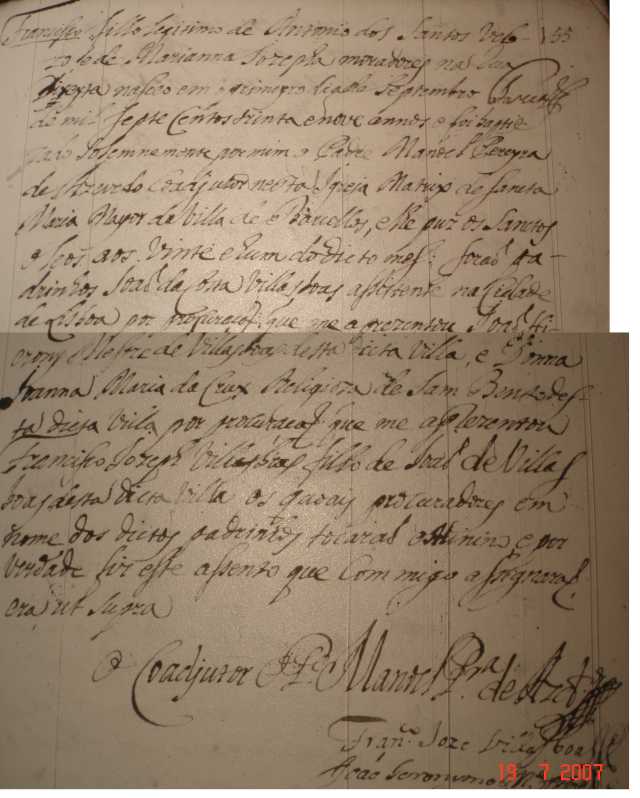 Francisco filho legitimo de Antonio dos Santos Vel- 155
zo e de Marianna Jozepha moradores na Rua
Direyta nasceo em o primeyro dia do Septembro
de mil septe centos trinta e nove annos e foi baptiz
zado solemnemente por mim o Padre Manoel Pereyra
de Azevedo Coadjutor nesta Igreja Matrix de Sancta
Maria Mayor da Villa de Barcellos, e lhe puz os Sanctos
oleos aos vinte e hum do dicto mes: foraõ pa-
drinhos Joaõ da Costa Villasboas assistente na Cidade
de Lisboa por procuraçaõ que me aprezentou Joaõ Hi-
eronymo de Villasboas desta dicta Villa, e Donna
Joanna Maria da Crux Religioza de Sam Bento des-
ta dicta Villa por procuraçaõ que me apprezentou
Francisco Jozeph Villasboas filho de Joaõ de Villas
boas desta dicta Villa os quoays procuradores em
nome dos dictos padrinhos tocaraõ o Minino e por
verdade fiz este assento que com migo assignaraõ
era ut supra
O Coadjutor o Pe Manoel Pra de Azdo
Franco Joze Villasboas
João Geronymo
19 7 2007